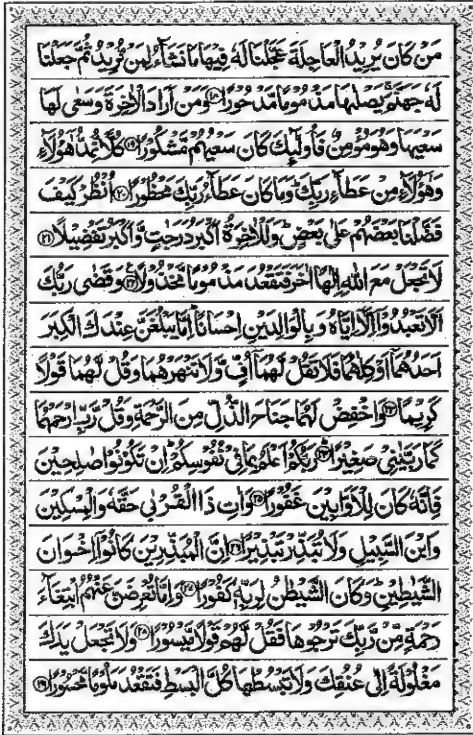 مَنْ كَانَ يُرِيْدُ الْعَاجِلَةَ عَجَّلْنَا لَهٗ فِيْهَا مَا نَشَآءُ لِمَنْ نُّرِيْدُ ثُمَّ جَعَلْنَا
لَهٗ جَهَنَّمَۚ يَصْلٰىهَا مَذْمُوْمًا مَّدْحُوْرًا ۝۱۸ وَمَنْ اَرَادَ الْاٰخِرَةَ وَسَعٰى لَهَا
سَعْيَهَا وَهُوَ مُؤْمِنٌ فَاُولٰٓئِكَ كَانَ سَعْيُهُمْ مَّشْكُوْرًا ۝۱۹ كُلًّا نُّمِدُّ هٰٓؤُلَآءِ
وَهٰٓؤُلَآءِ مِنْ عَطَآءِ رَبِّكَؕ وَمَا كَانَ عَطَآءُ رَبِّكَ مَحْظُوْرًا ۝۲۰ اُنْظُرْ كَيْفَ
فَضَّلْنَا بَعْضَهُمْ عَلٰى بَعْضٍؕ وَلَلْاٰخِرَةُ اَكْبَرُ دَرَجٰتٍ وَّاَكْبَرُ تَفْضِيْلًا ۝۲۱
لَا تَجْعَلْ مَعَ اللّٰهِ اِلٰهًا اٰخَرَ فَتَقْعُدَ مَذْمُوْمًا مَّخْذُوْلًا ۝۲۲ وَقَضٰى رَبُّكَ
اَلَّا تَعْبُدُوْۤا اِلَّاۤ اِيَّاهُ وَبِالْوَالِدَيْنِ اِحْسَانًاؕ اِمَّا يَبْلُغَنَّ عِنْدَكَ الْكِبَرَ
اَحَدُهُمَاۤ اَوْ كِلٰهُمَا فَلَا تَقُلْ لَّهُمَاۤ اُفٍّ وَّلَا تَنْهَرْهُمَا وَقُلْ لَّهُمَا قَوْلًا
كَرِيْمًا ۝۲۳ وَاخْفِضْ لَهُمَا جَنَاحَ الذُّلِّ مِنَ الرَّحْمَةِ وَقُلْ رَّبِّ ارْحَمْهُمَا
كَمَا رَبَّيٰنِيْ صَغِيْرًا ۝۲۴ رَبُّكُمْ اَعْلَمُ بِمَا فِيْ نُفُوْسِكُمْؕ اِنْ تَكُوْنُوْا صٰلِحِيْنَ
فَاِنَّهٗ كَانَ لِلْاَوَّابِيْنَ غَفُوْرًا ۝۲۵ وَاٰتِ ذَا الْقُرْبٰى حَقَّهٗ وَالْمِسْكِيْنَ
وَابْنَ السَّبِيْلِ وَلَا تُبَذِّرْ تَبْذِيْرًا ۝۲۶ اِنَّ الْمُبَذِّرِيْنَ كَانُوْۤا اِخْوَانَ
الشَّيٰطِيْنِؕ وَكَانَ الشَّيْطٰنُ لِرَبِّهٖ كَفُوْرًا ۝۲۷ وَاِمَّا تُعْرِضَنَّ عَنْهُمُ ابْتِغَآءَ
رَحْمَةٍ مِّنْ رَّبِّكَ تَرْجُوْهَا فَقُلْ لَّهُمْ قَوْلًا مَّيْسُوْرًا ۝۲۸ وَلَا تَجْعَلْ يَدَكَ
مَغْلُوْلَةً اِلٰى عُنُقِكَ وَلَا تَبْسُطْهَا كُلَّ الْبَسْطِ فَتَقْعُدَ مَلُوْمًا مَّحْسُوْرًا ۝۲۹